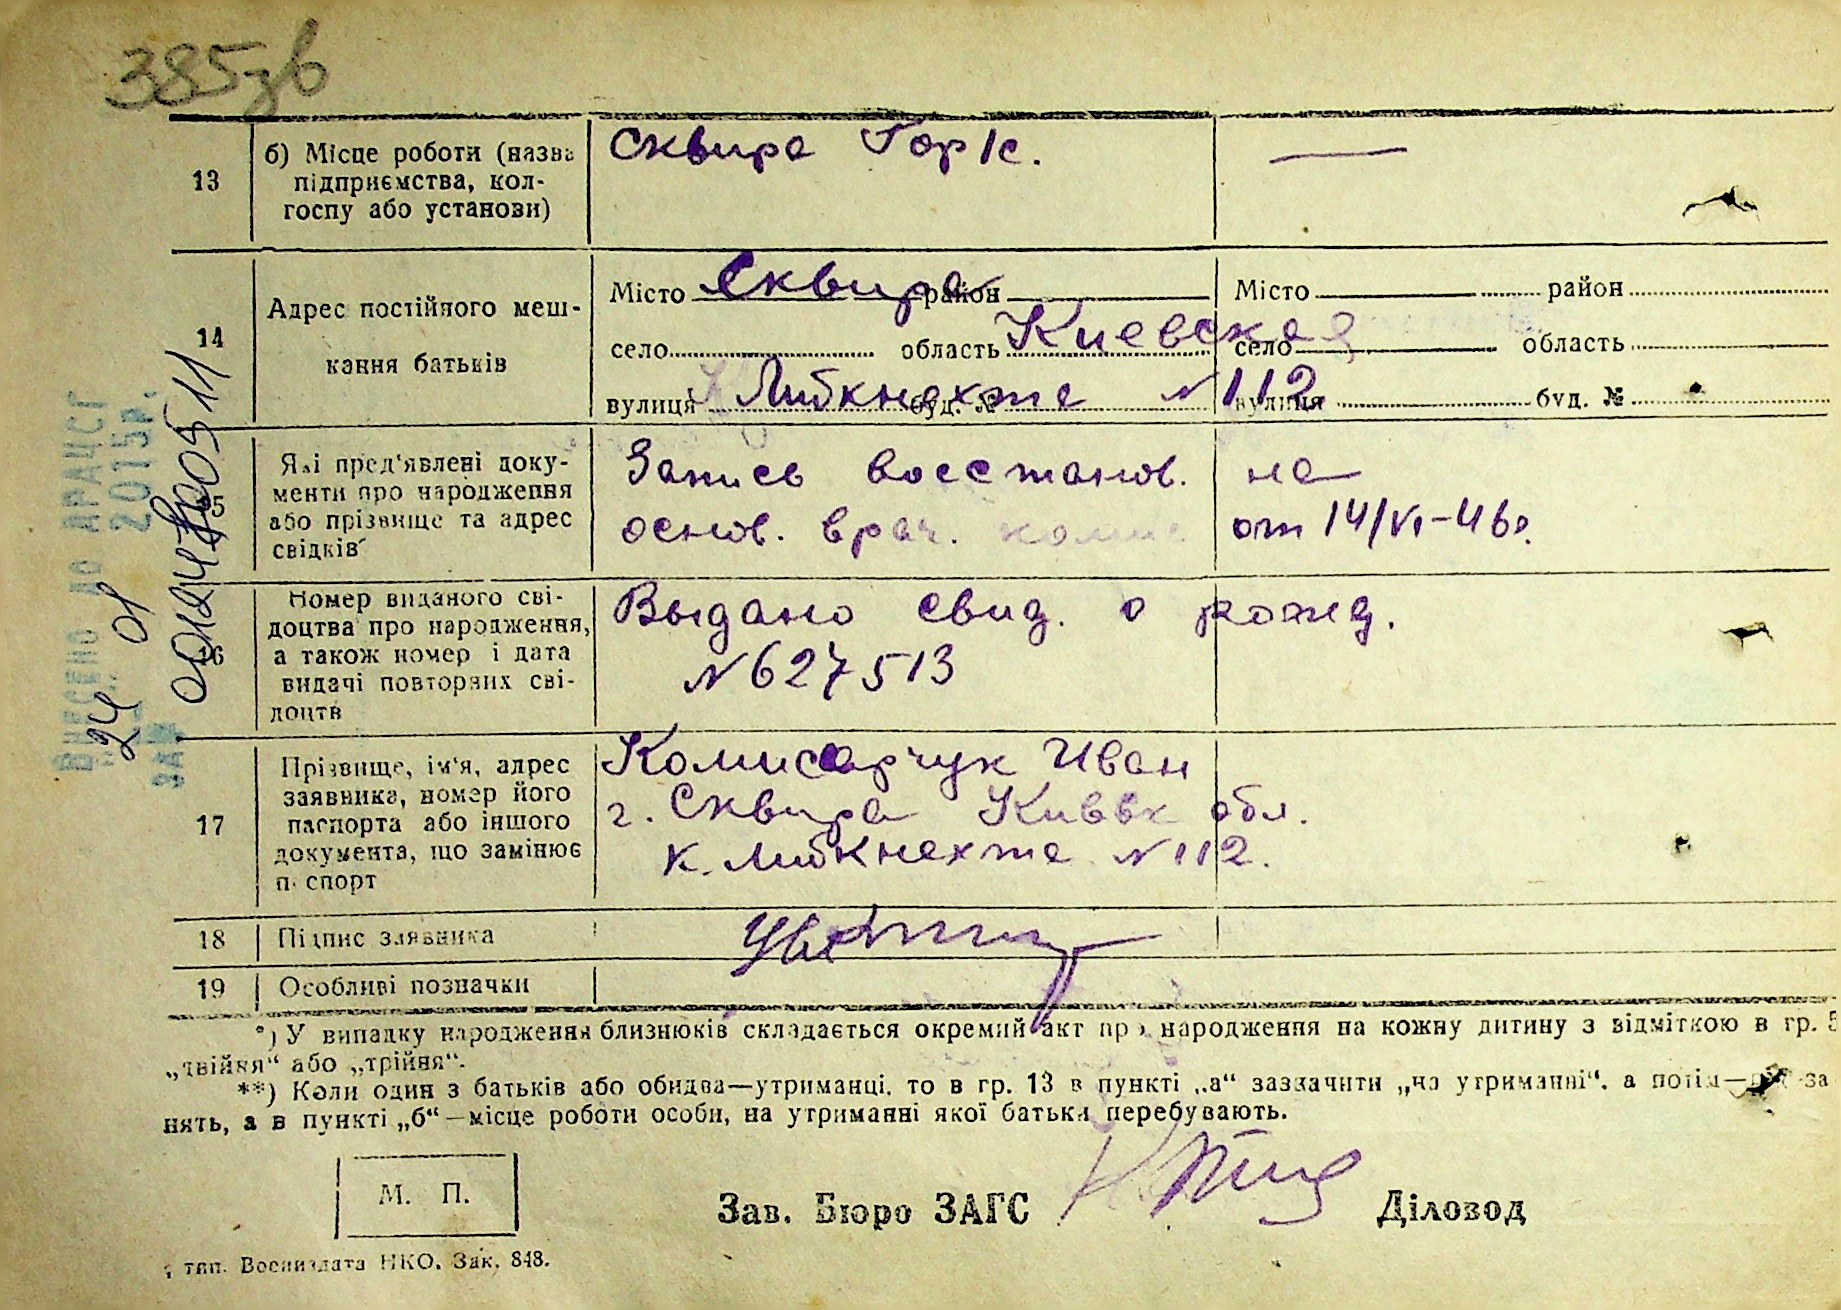 385зв
13
б) Місце роботи (назва
підприємства, кол-
госпу або установи)
Сквира Горк.
—
14
Адрес постійного меш-
кання батьків
Місто Сквира район
село область Киевская
вулиця Либкнехта буд. № N 112
Місто район
село область
вулиця буд. №
15
Які пред'явлені доку-
менти про народження
або прізвище та адрес
свідків
Запись восстанов. на
основ. врач. комис от 14/VI-46г.
16
Номер виданого сві-
доцтва про народження,
а також номер і дата
видачі повторних сві-
доцтв
Выдано свид. о рожд.
N 627513
17
Прізвище, ім'я, адрес
заявника, номер його
паспорта або іншого
документа, що замінює
паспорт
Комисарчук Иван
г. Сквира Киевск обл.
К. Либкнехта N 112.
18
Підпис заявника
19
Особливі позначки
*) У випадку народження близнюків складається окремий акт про народження на кожну дитину з відміткою в гр. 5
„двійня“ або „трійня“.
**) Коли один з батьків або обидва—утриманці, то в гр. 13 в пункті „а“ зазначити „на утриманні“, а потім—рід за
нять, а в пункті „б“—місце роботи особи, на утриманні якої батьки перебувають.
М. П.
Зав. Бюро ЗАГС
Діловод
тип. Воениздата НКО. Зак. 848.
Внесено до ДРАЦСГ
24 01 2015р.